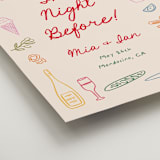 Night
Before!
Mia & Ian
May 26th
Mendocino, CA